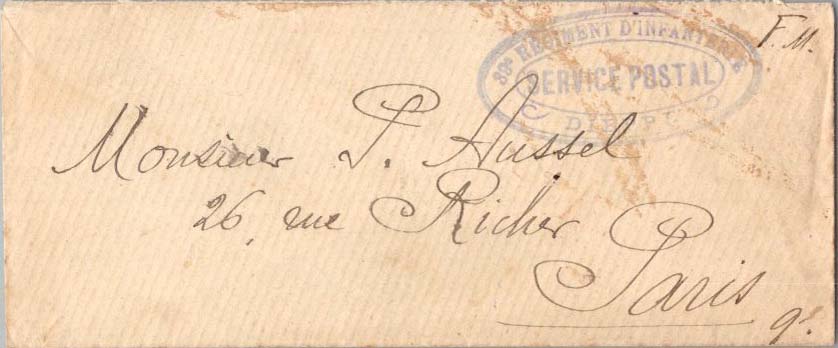 39e REGIMENT D'INFANTERIE
SERVICE POSTAL
DIEPPE
F. M.
Monsieur P. Aussel
26, rue Richer
Paris
9e